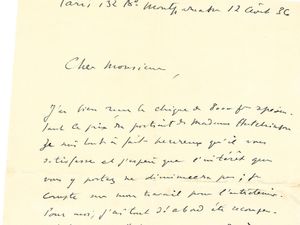 Paris 132 Bd Montparnasse 12 Août 36
Cher Monsieur,
J'ai bien reçu le chèque de 8000 frs représen-
tant le prix du portrait de Madame Hutchinson
Je suis tout à fait heureux qu'il vous
satisfasse et j'espère que l'intérêt que
vous y portez ne diminuera pas ; je
compte sur mon travail pour l'entretenir.
Pour moi, j'ai tout d'abord été